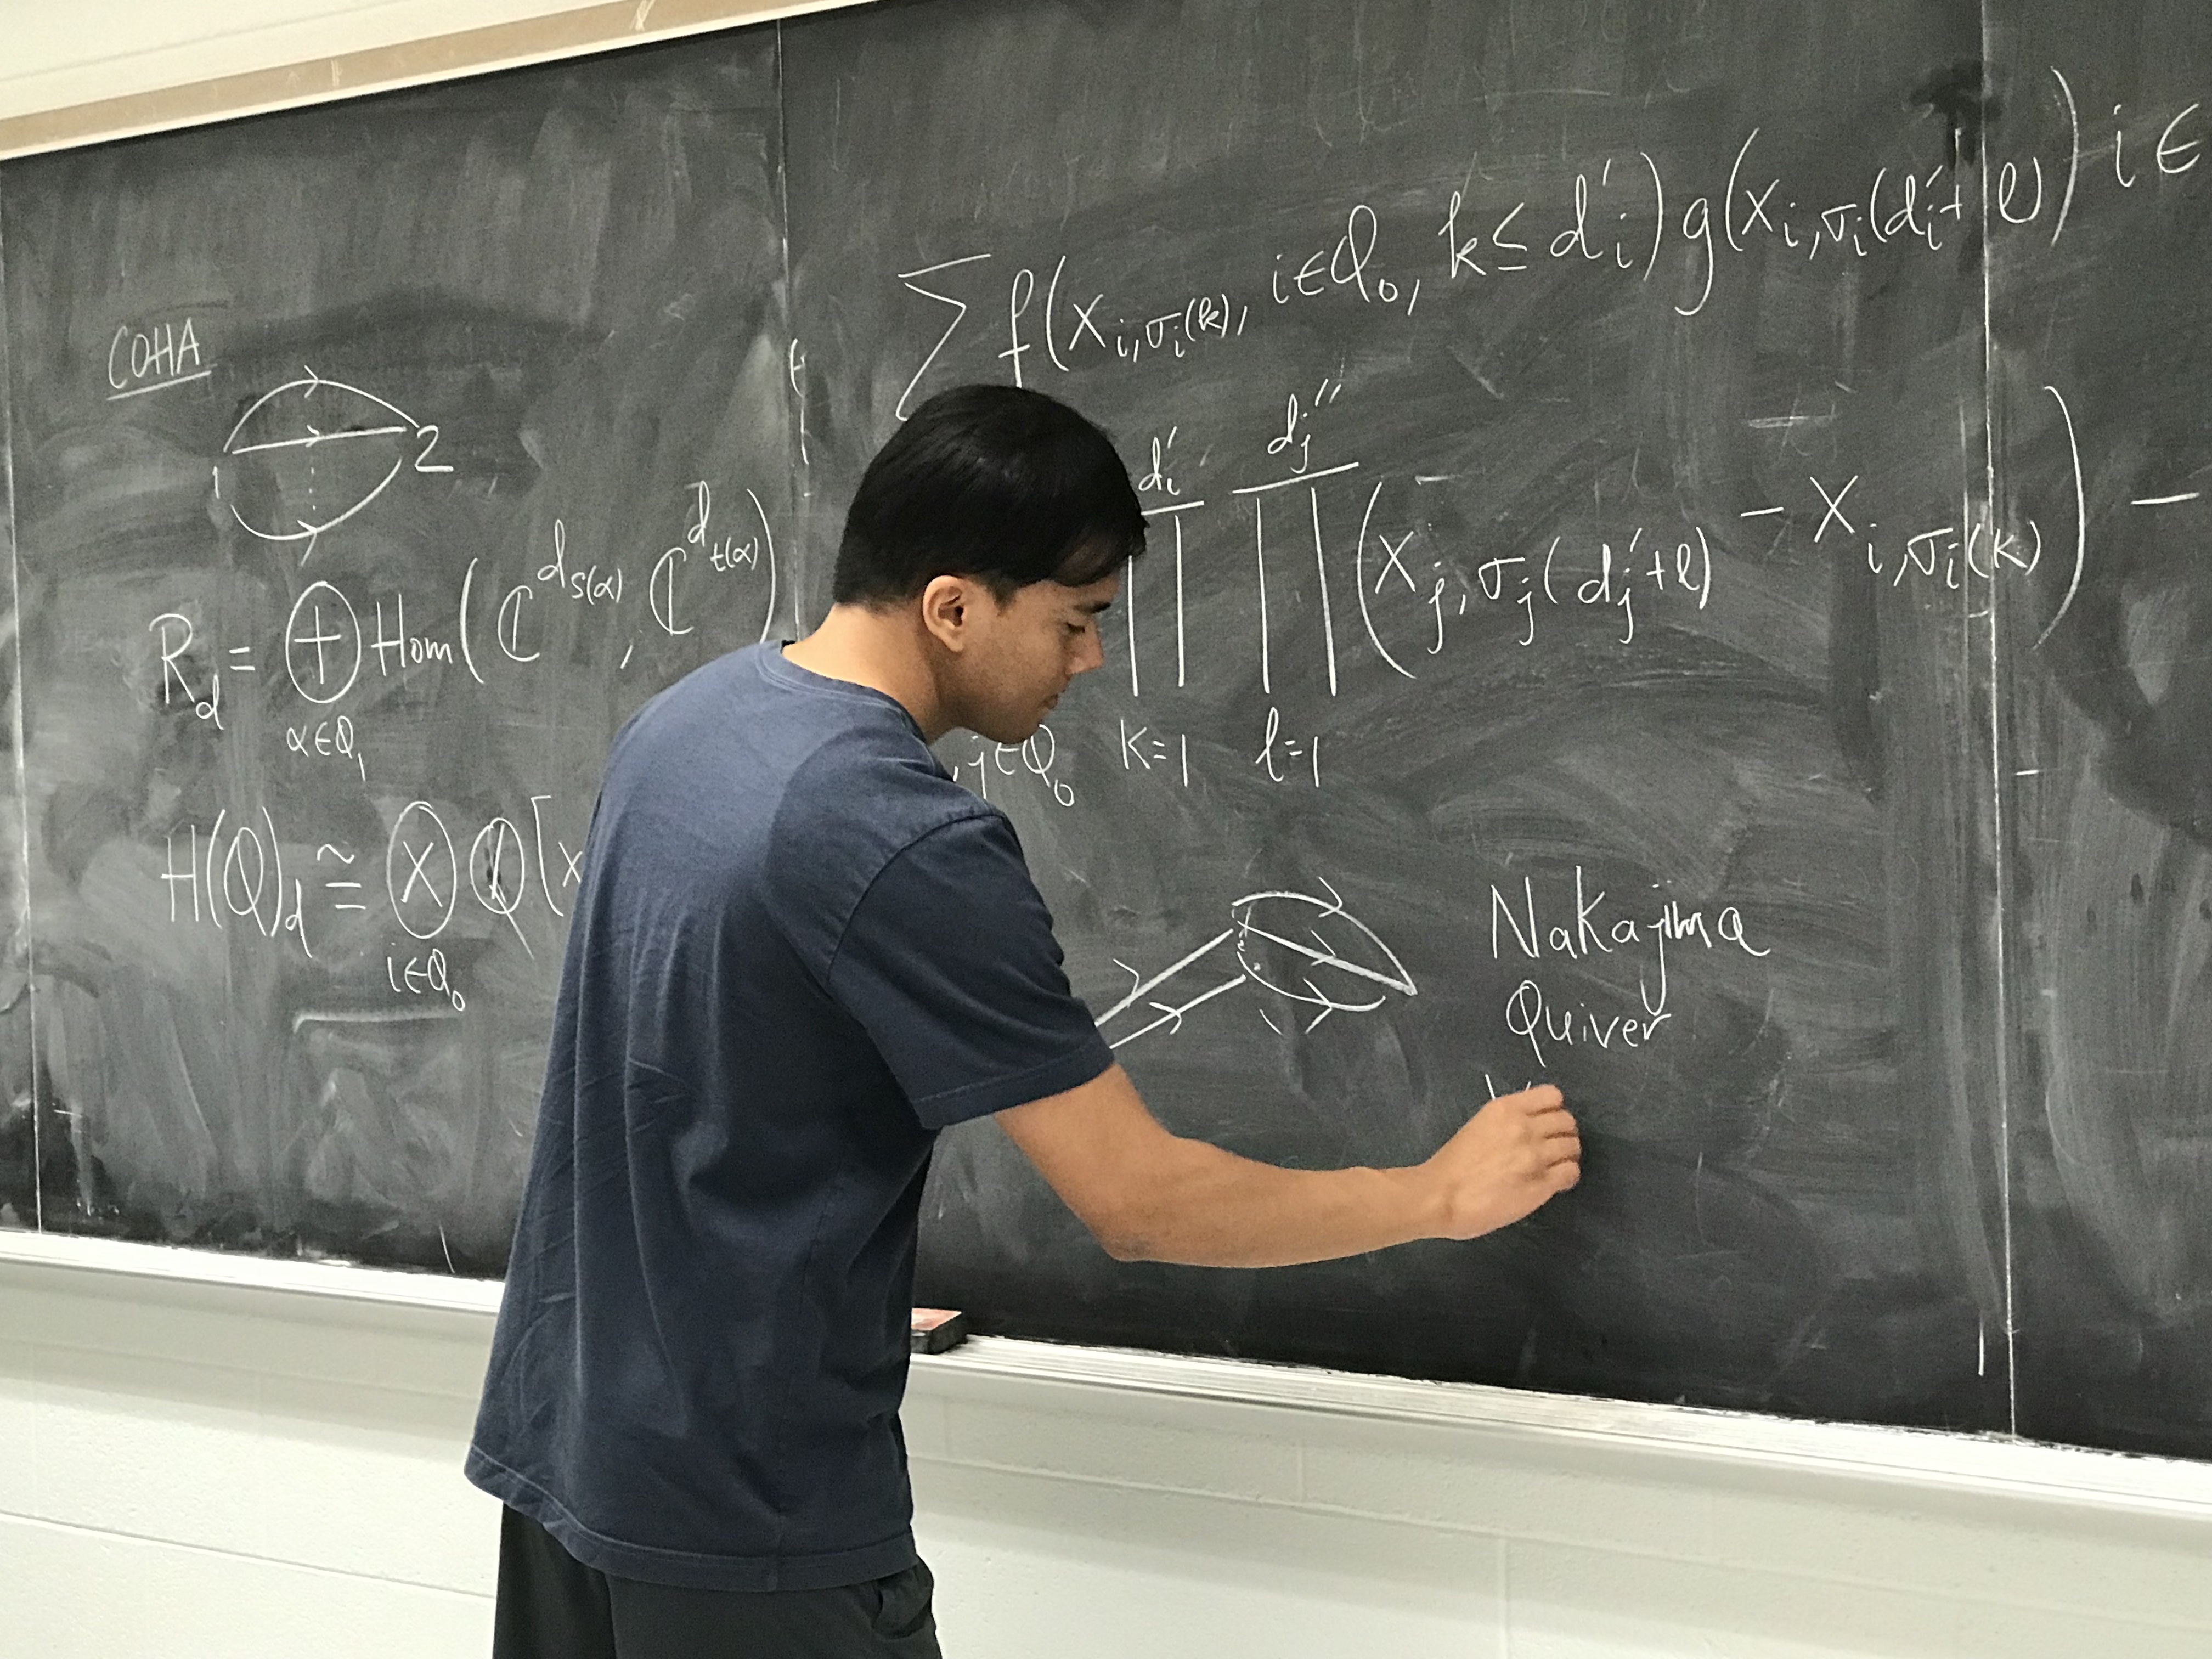 COHA
1 2
R_d = ⊕_{α∈Q_1} Hom(ℂ^{d_{s(α)}}, ℂ^{d_{t(α)}})
H(Q)_d ≅ ⊗_{i∈Q_0} ℚ[x
∑ f(x_{i,σ_i(k)}, i∈Q_0, k≤d'_i) g(x_{i,σ_i(d'_i+l)}) i∈
_{,j∈Q_0} ∏_{k=1}^{d'_i} ∏_{l=1}^{d''_j} (x_{j,σ_j(d'_j+l)} - x_{i,σ_i(k)}) -
Nakajima
Quiver